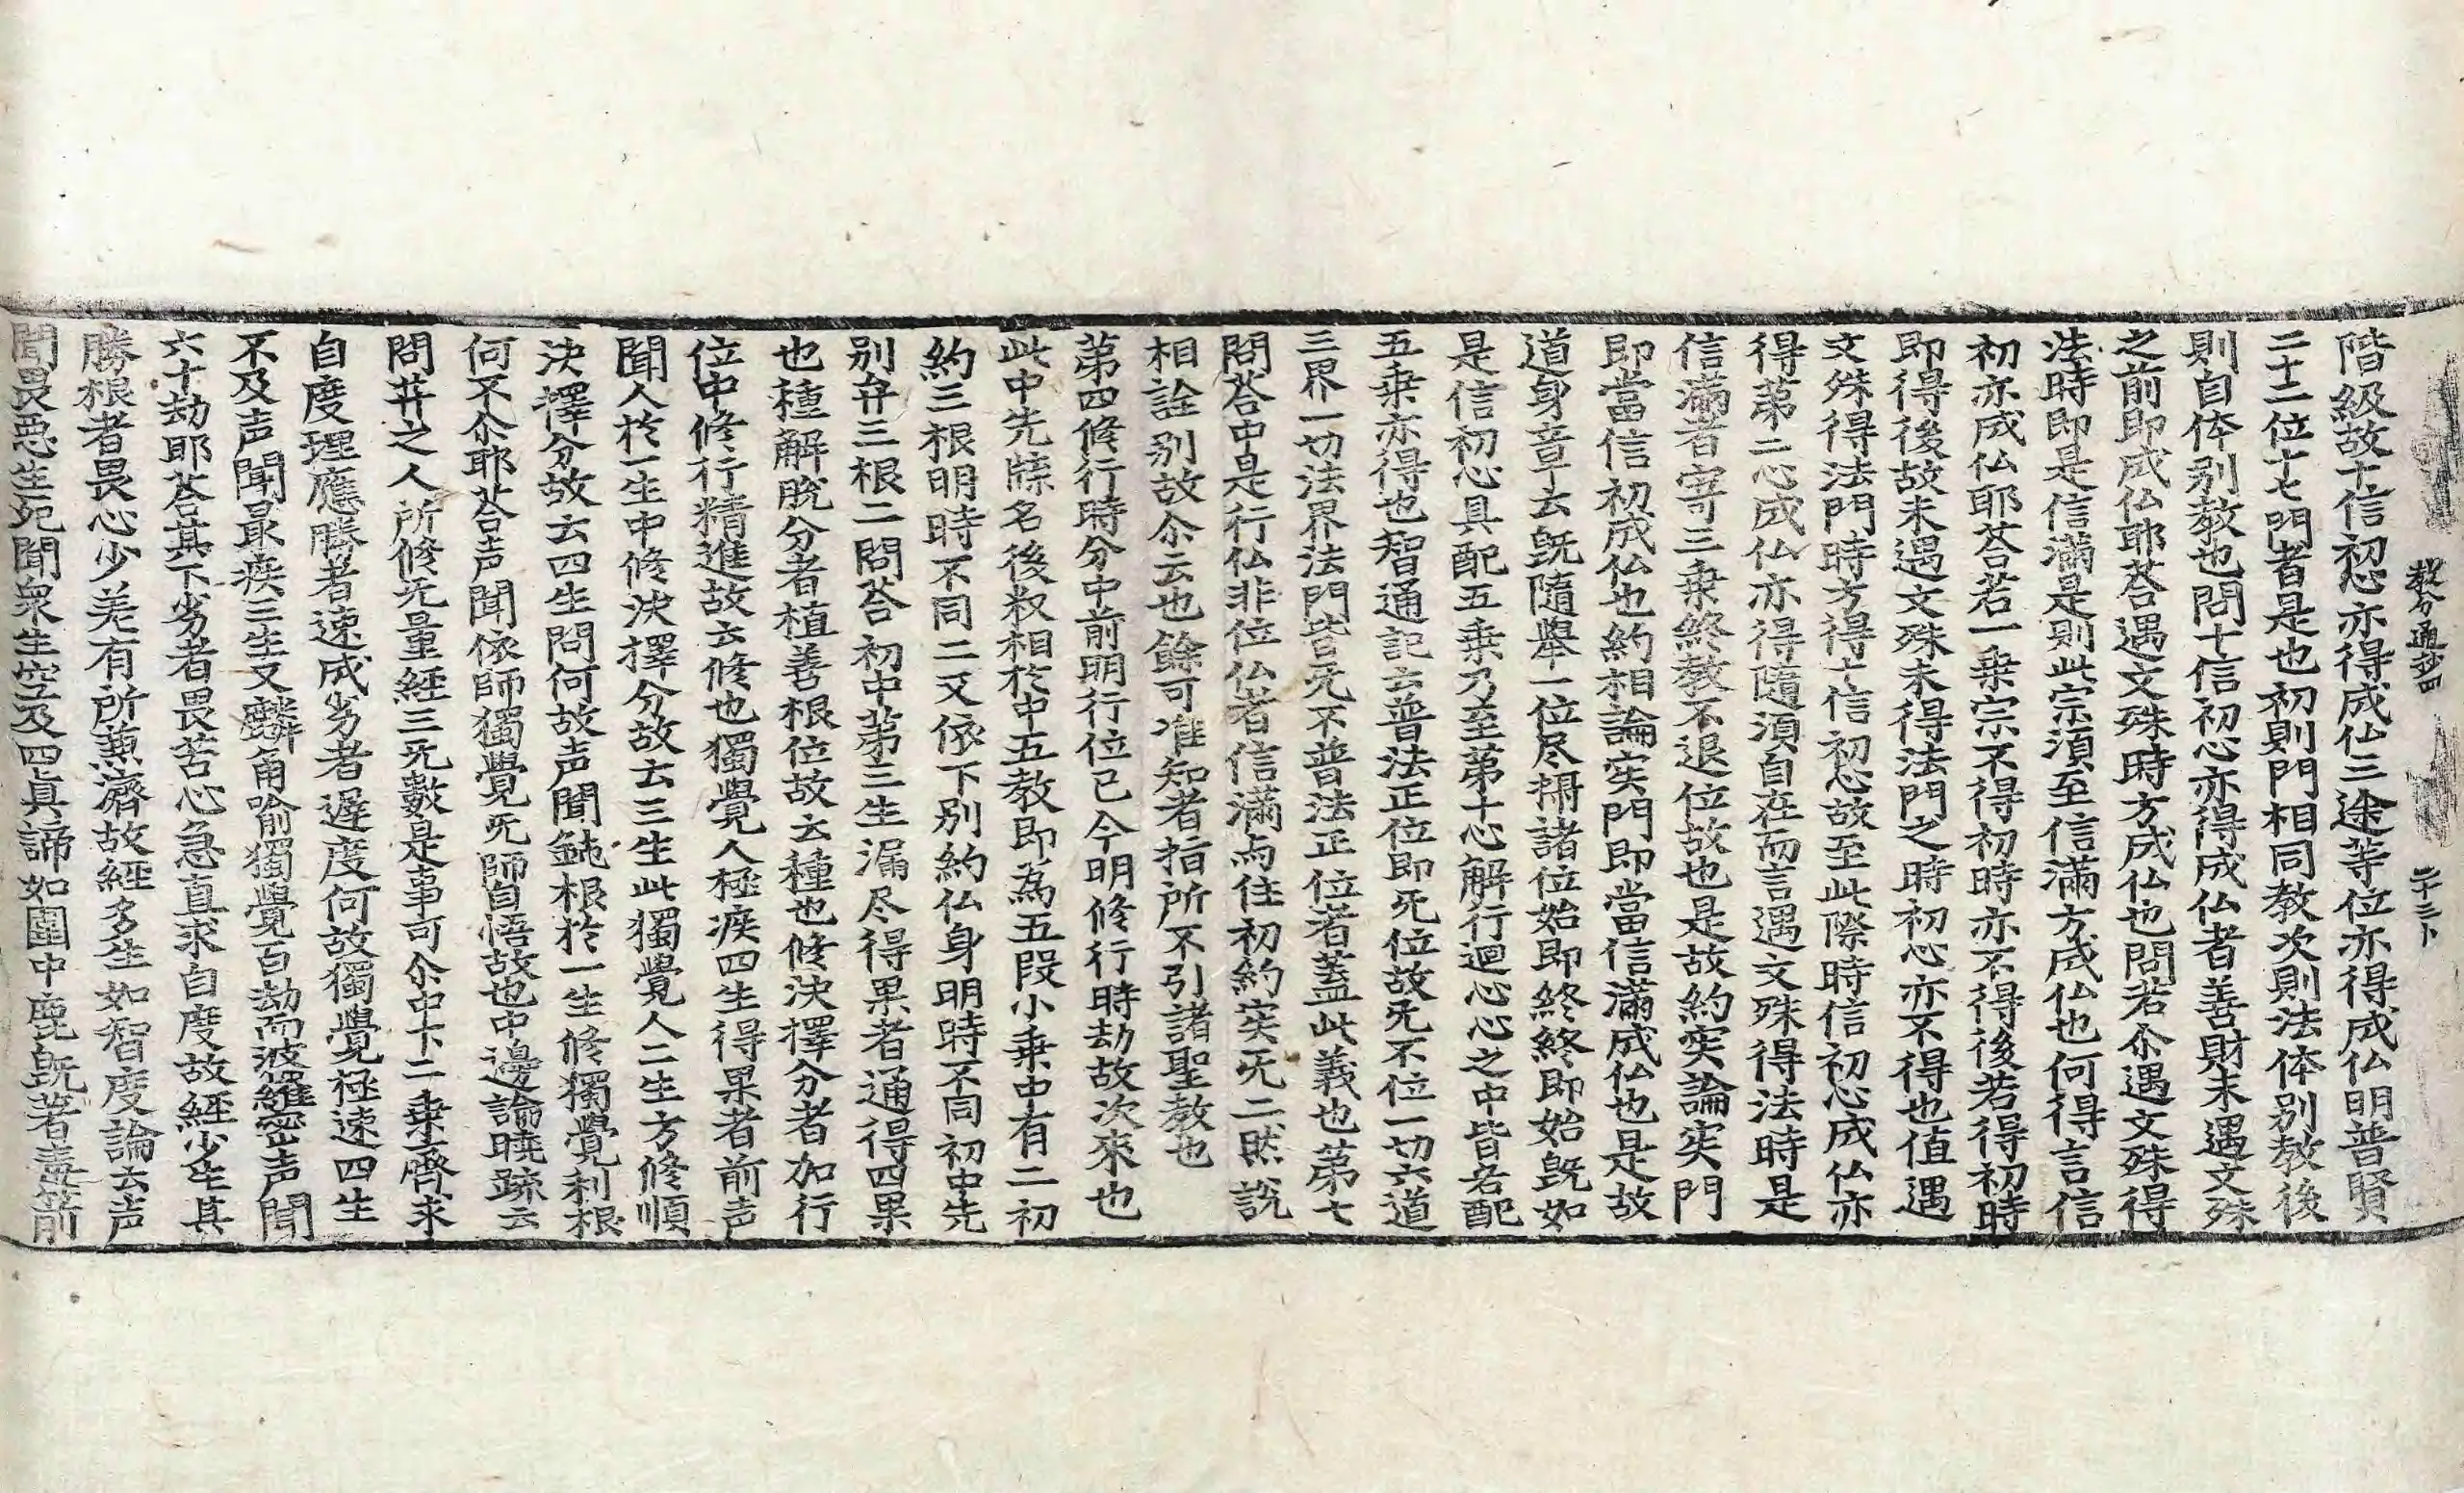 教分通抄四 二十三卜
階級故十信初心亦得成仏三途等位亦得成仏明普賢
二十二位十七門者是也初則門相同教次則法体別教後
則自体别教也問十信初心亦得成仏者善財未遇文殊
之前即成仏耶荅遇文殊時方成仏也問若尒遇文殊得
法時即是信滿是則此宗湏至信滿方成仏也何得言信
初亦成仏耶荅若一乗宗不得初時亦不得後若得初時
即得後故未遇文殊未得法門之時初心亦不得也值遇
文殊得法門時方得十信初心故至此際時信初心成仏亦
得苐二心成仏亦得隨湏自在而言遇文殊得法時是
信滿者寄三乗終教不退位故也是故約实論实門
即當信初成仏也約相論实門即當信滿成仏也是故
道身章云旣隨舉一位尽攝諸位始即終終即始旣如
是信初心具配五乗乃至苐十心解行迴心心之中皆各配
五乗亦得也智通記云普法正位即无位故无不位一切六道
三界一切法界法門皆无不普法正位者蓋此義也苐七
問荅中是行仏非位仏者信滿与住初約实无二然說
相詮别故尒云也餘可准知者指所不引諸聖教也
苐四修行時分中前明行位已今明修行時劫故次來也
此中先牒名後叙相於中五教即為五段小乗中有二初
約三根明時不同二又依下别約仏身明時不同初中先
别弁三根二問荅初中苐三生漏尽得果者通得四果
也種解脫分者植善根位故云種也修决擇分者加行
位中修行精進故云修也獨覺人極疾四生得果者前声
聞人於一生中修决擇分故云三生此獨覺人二生方修順
决擇分故云四生問何故声聞鈍根於一生修獨覺利根
何不尒耶荅声聞依師獨覺无師自悟故也中邊論曉䟽云
問井之人所修无量經三无數是事可尒中下二乗齊求
自度理應勝者速成劣者遅度何故獨覺極速四生
不及声聞最疾三生又麟角喻獨覺百劫而波羅蜜声聞
六十劫耶荅其下劣者畏苦心急直求自度故經少生其
勝根者畏心少羙有所兼濟故經多生如智度論云声
聞畏惡生死聞衆生空及四眞諦如圍中鹿旣著毒箭